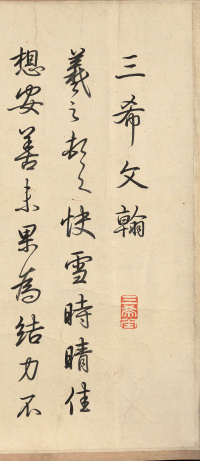 三希文翰
羲之頓首快雪時晴佳
想安善未果為結力不